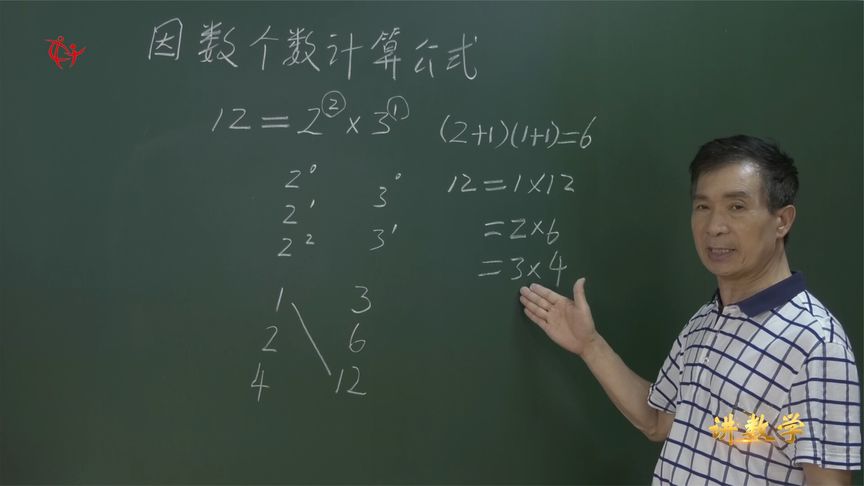 因数个数计算公式
12=2²×3¹
(2+1)(1+1)=6
2⁰ 3⁰
2¹ 3¹
2²
12=1×12
=2×6
=3×4
1 3
2 6
4 12
讲数学